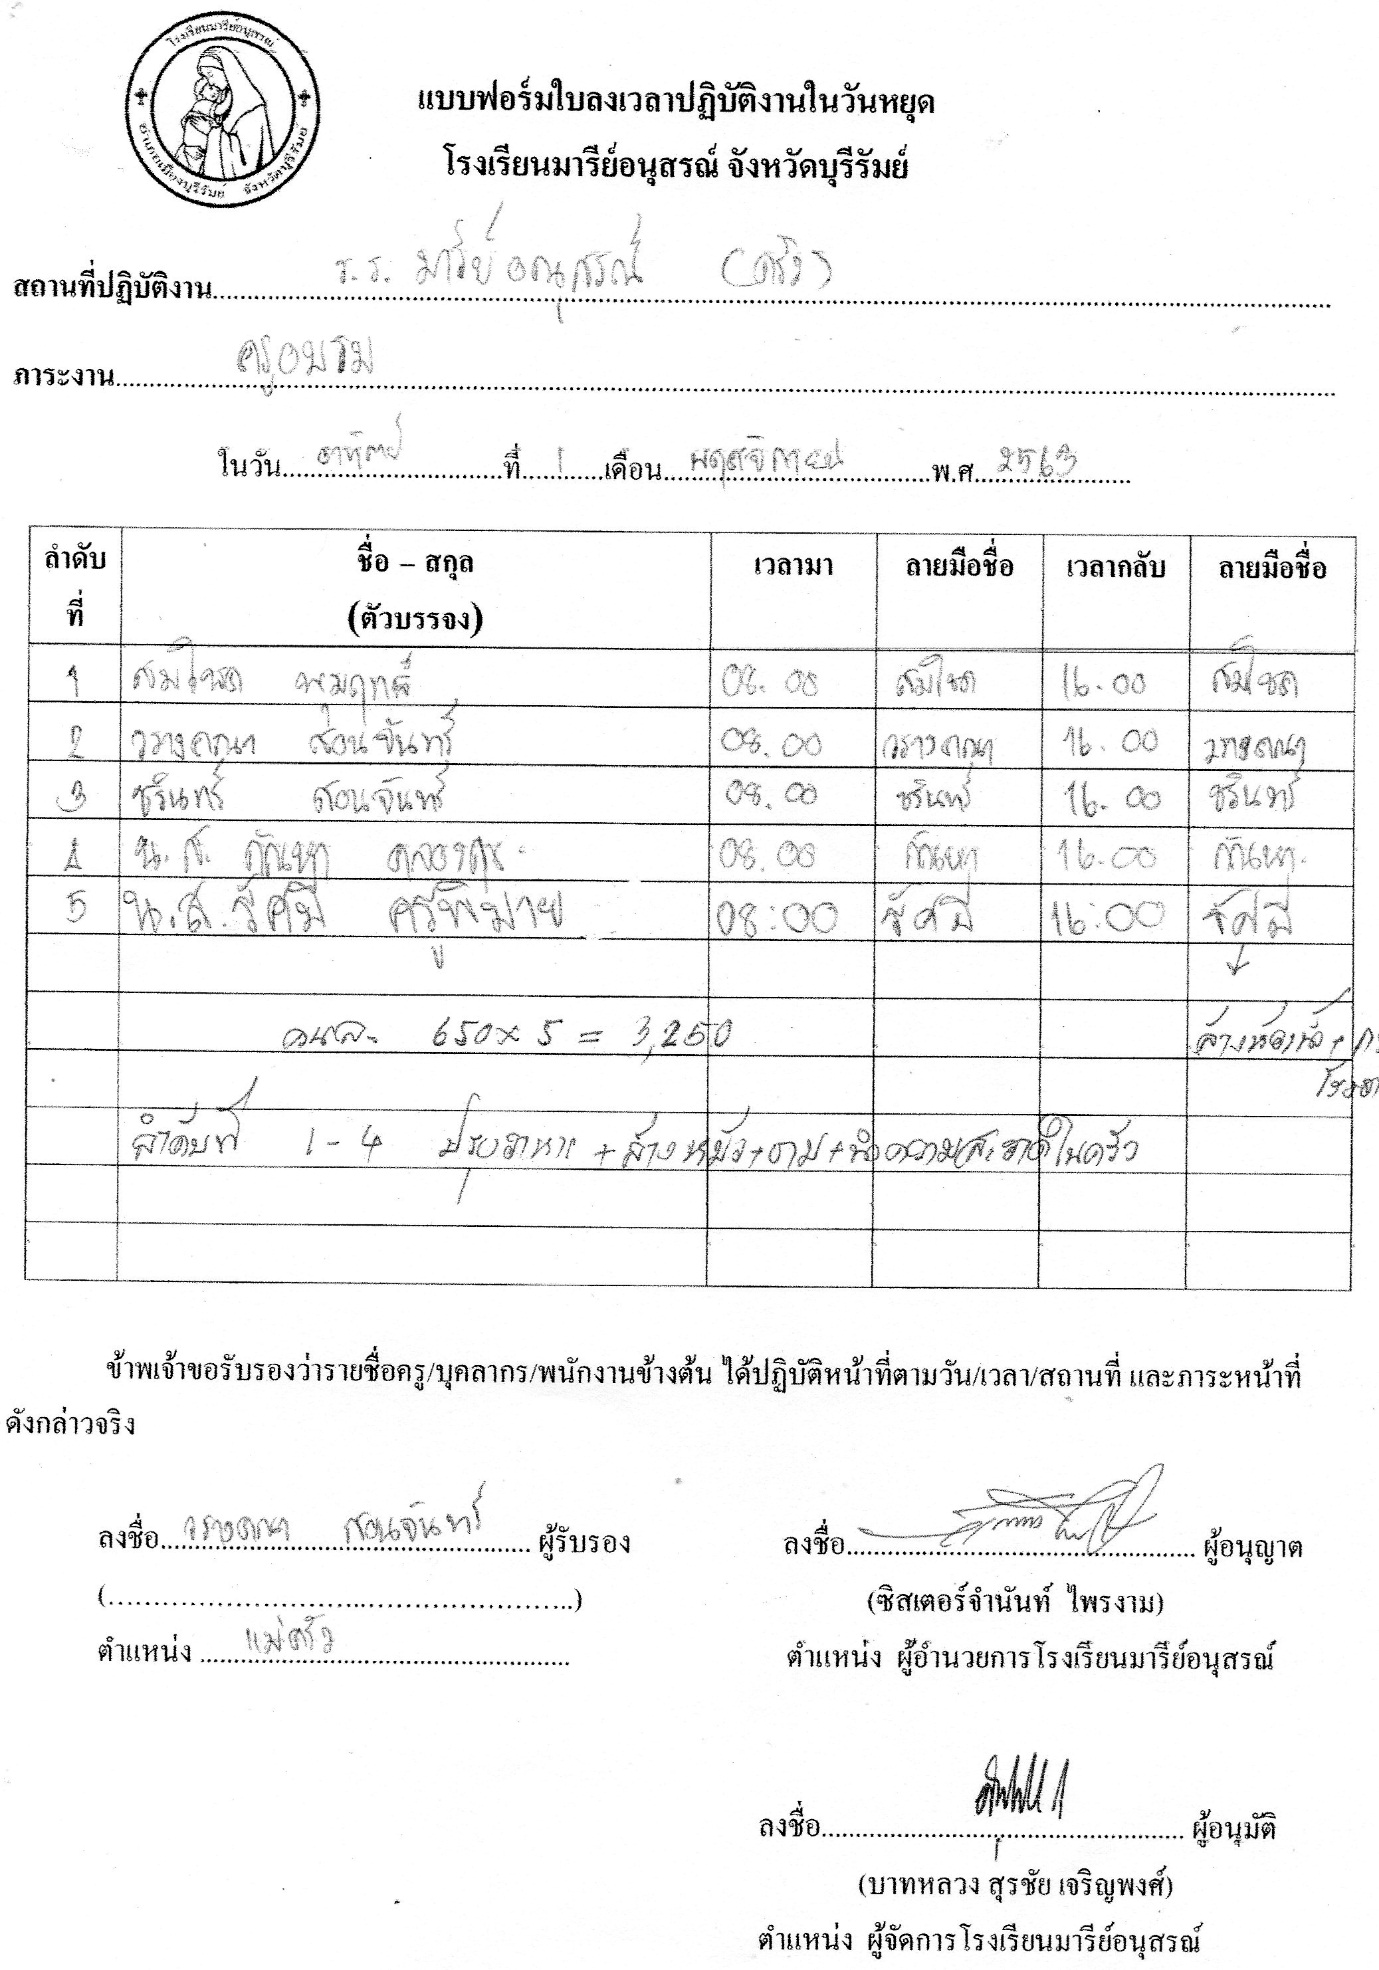 โรงเรียนมารีย์อนุสรณ์
อำเภอเมืองบุรีรัมย์ จังหวัดบุรีรัมย์
แบบฟอร์มใบลงเวลาปฏิบัติงานในวันหยุด
โรงเรียนมารีย์อนุสรณ์ จังหวัดบุรีรัมย์
สถานที่ปฏิบัติงาน ร.ร. มารีย์อนุสรณ์ (ครัว)
ภาระงาน ครูอบรม
ในวัน อาทิตย์ ที่ 1 เดือน พฤศจิกายน พ.ศ. 2563
ลำดับที่ ชื่อ – สกุล (ตัวบรรจง) เวลามา ลายมือชื่อ เวลากลับ ลายมือชื่อ
1 สมโชค 08.00 สมโชค 16.00 สมโชค
2 วรางคณา สอนจันทร์ 08.00 วรางคณา 16.00 วรางคณา
3 ชรินทร์ สอนจันทร์ 08.00 ชรินทร์ 16.00 ชรินทร์
4 น.ส. กัณหา 08.00 กัณหา 16.00 กัณหา
5 น.ส. รัศมี ครูพิมาย 08:00 รัศมี 16:00 รัศมี
คนละ 650 x 5 = 3,250
ล้างห้องน้ำ +
ลำดับที่ 1 - 4 ปรุงอาหาร + ล้างหม้อ + ชาม + ทำความสะอาดในครัว
ข้าพเจ้าขอรับรองว่ารายชื่อครู/บุคลากร/พนักงานข้างต้น ได้ปฏิบัติหน้าที่ตามวัน/เวลา/สถานที่ และภาระหน้าที่
ดังกล่าวจริง
ลงชื่อ วรางคณา สอนจันทร์ ผู้รับรอง
ลงชื่อ ผู้อนุญาต
(ซิสเตอร์จำนันท์ ไพรงาม)
ตำแหน่ง แม่ครัว
ตำแหน่ง ผู้อำนวยการโรงเรียนมารีย์อนุสรณ์
ลงชื่อ ผู้อนุมัติ
(บาทหลวง สุรชัย เจริญพงศ์)
ตำแหน่ง ผู้จัดการโรงเรียนมารีย์อนุสรณ์